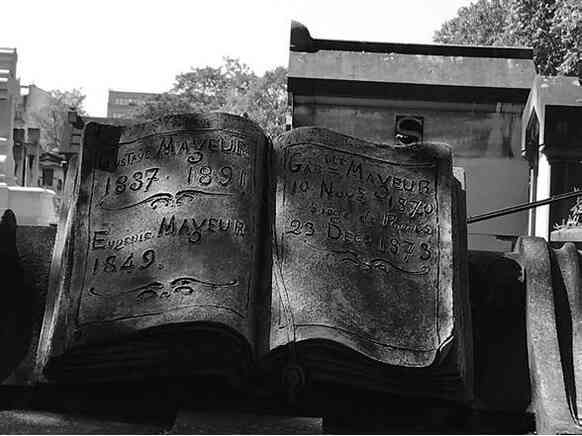 Gustave Mayeur
1837. 1891
Eugenie Mayeur
1849.
Mayeur
10 Nov 1870
de
23 Dec 1873